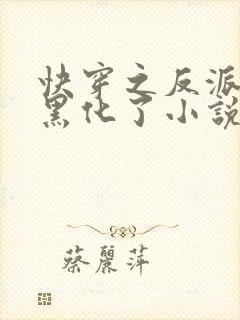 快穿之反派
黑化了小說
蔡麗萍